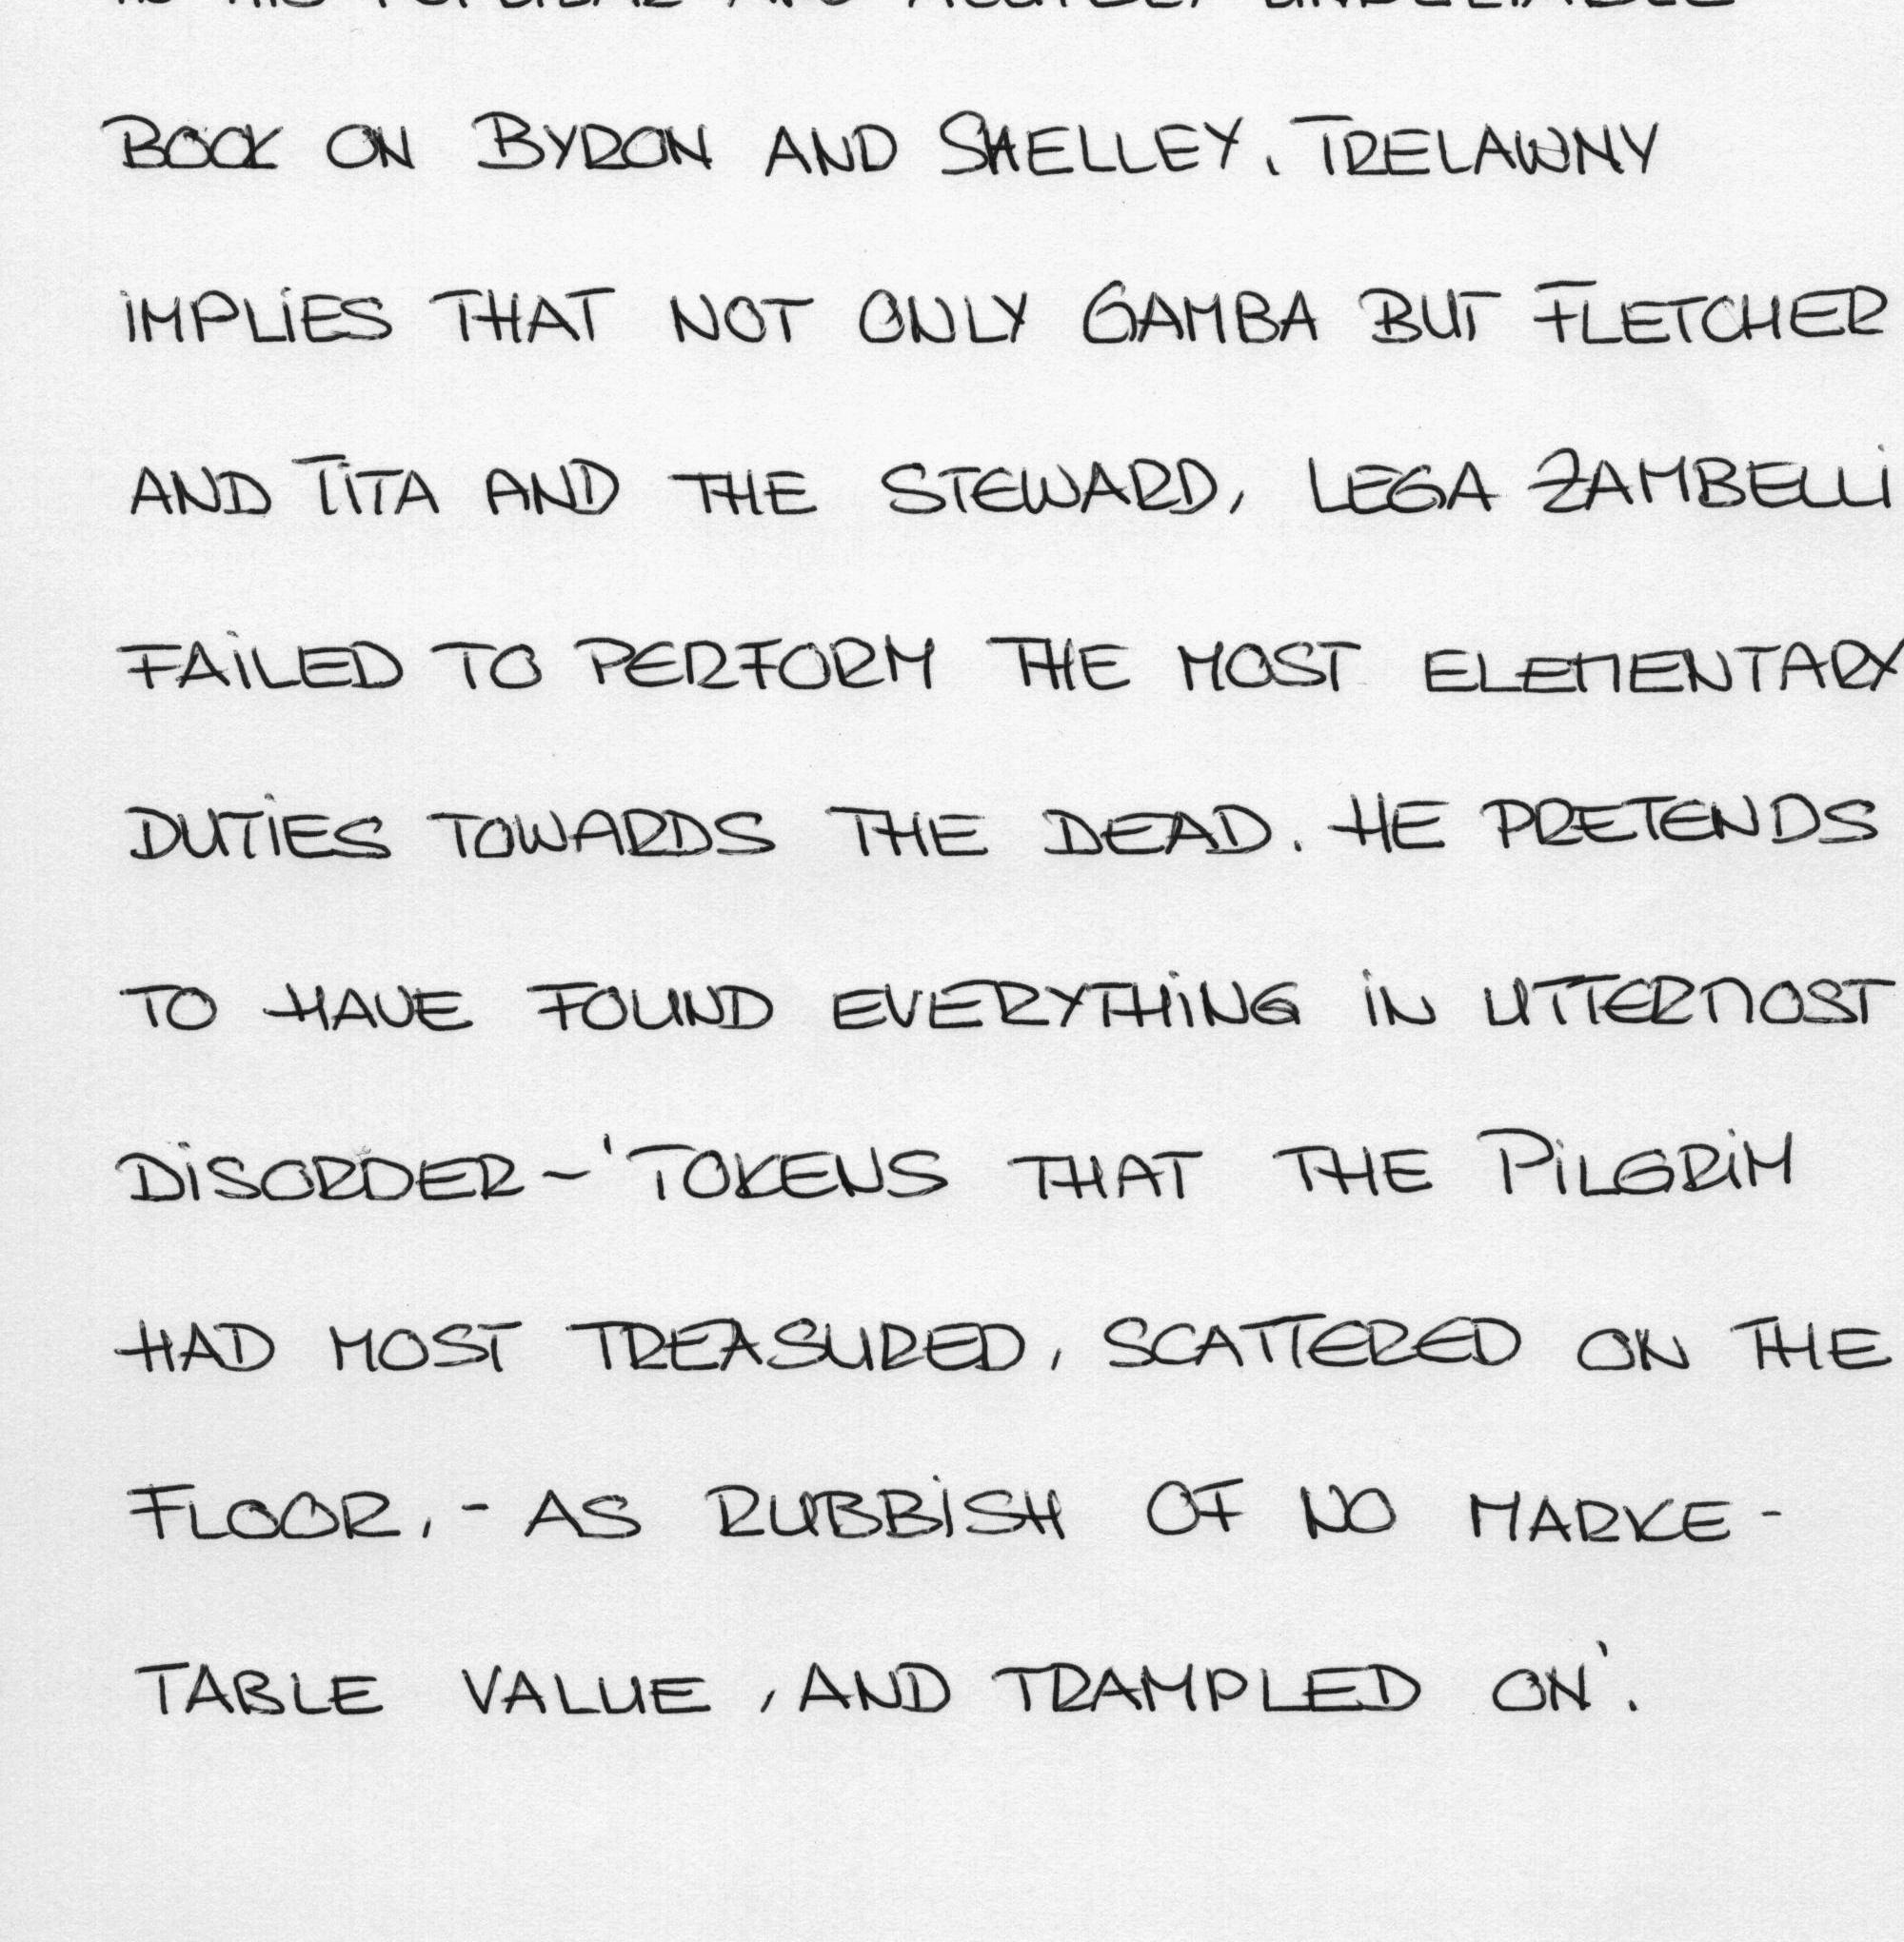 BOOK ON BYRON AND SHELLEY, TRELAWNY
IMPLIES THAT NOT ONLY GAMBA BUT FLETCHER
AND TITA AND THE STEWARD, LEGA ZAMBELLI
FAILED TO PERFORM THE MOST ELEMENTARY
DUTIES TOWARDS THE DEAD. HE PRETENDS
TO HAVE FOUND EVERYTHING IN UTTERMOST
DISORDER - 'TOKENS THAT THE PILGRIM
HAD MOST TREASURED, SCATTERED ON THE
FLOOR, - AS RUBBISH OF NO MARKE -
TABLE VALUE, AND TRAMPLED ON'.